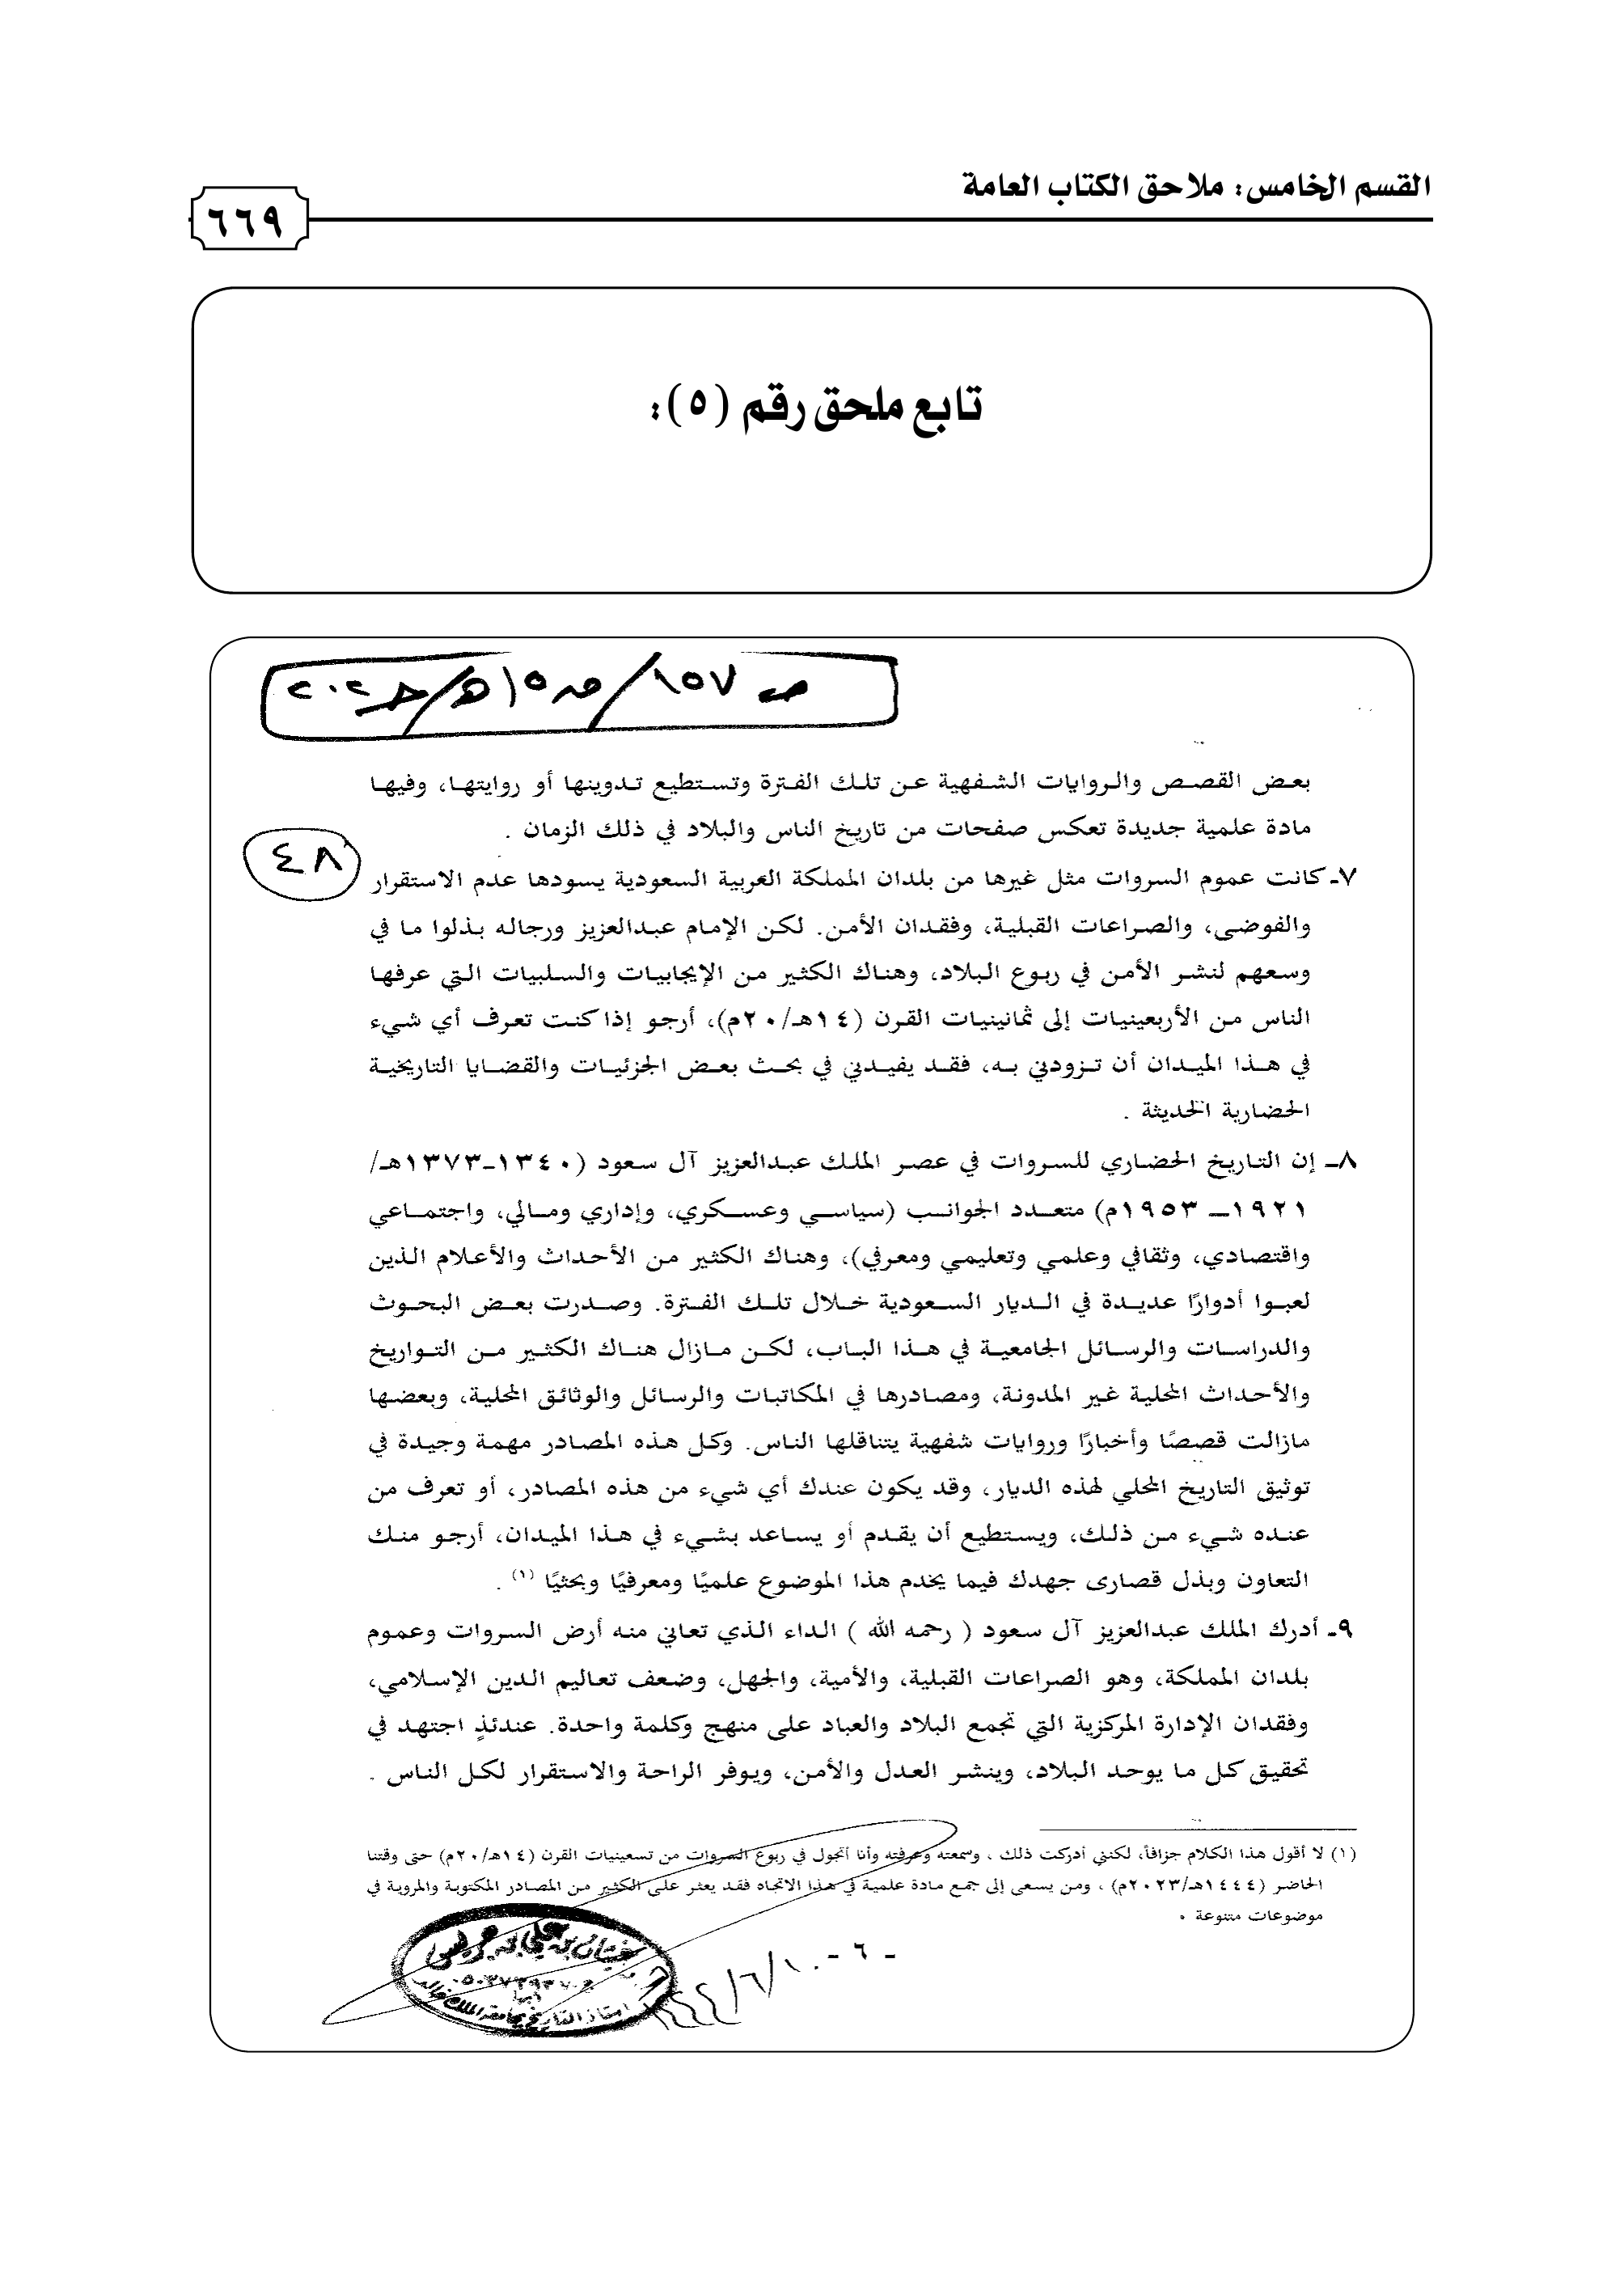 القسم الخامس: ملاحق الكتاب العامة
٦٦٩
تابع ملحق رقم (٥):
ص ١٥٧ /
٤٨
بعض القصص والروايات الشفهية عن تلك الفترة وتستطيع تدوينها أو روايتها، وفيها
مادة علمية جديدة تعكس صفحات من تاريخ الناس والبلاد في ذلك الزمان .
٧- كانت عموم السروات مثل غيرها من بلدان المملكة العربية السعودية يسودها عدم الاستقرار
والفوضى، والصراعات القبلية، وفقدان الأمن. لكن الإمام عبدالعزيز ورجاله بذلوا ما في
وسعهم لنشر الأمن في ربوع البلاد، وهناك الكثير من الإيجابيات والسلبيات التي عرفها
الناس من الأربعينيات إلى ثمانينيات القرن (١٤هـ/٢٠م)، أرجو إذا كنت تعرف أي شيء
في هذا الميدان أن تزودني به، فقد يفيدني في بحث بعض الجزئيات والقضايا التاريخية
الحضارية الحديثة .
٨- إن التاريخ الحضاري للسروات في عصر الملك عبدالعزيز آل سعود (١٣٤٠-١٣٧٣هـ/
١٩٢١- ١٩٥٣م) متعدد الجوانب (سياسي وعسكري، وإداري ومالي، واجتماعي
واقتصادي، وثقافي وعلمي وتعليمي ومعرفي)، وهناك الكثير من الأحداث والأعلام الذين
لعبوا أدوارًا عديدة في الديار السعودية خلال تلك الفترة. وصدرت بعض البحوث
والدراسات والرسائل الجامعية في هذا الباب، لكن مازال هناك الكثير من التواريخ
والأحداث المحلية غير المدونة، ومصادرها في المكاتبات والرسائل والوثائق المحلية، وبعضها
مازالت قصصًا وأخبارًا وروايات شفهية يتناقلها الناس. وكل هذه المصادر مهمة وجيدة في
توثيق التاريخ المحلي لهذه الديار، وقد يكون عندك أي شيء من هذه المصادر، أو تعرف من
عنده شيء من ذلك، ويستطيع أن يقدم أو يساعد بشيء في هذا الميدان، أرجو منك
التعاون وبذل قصارى جهدك فيما يخدم هذا الموضوع علميًا ومعرفيًا وبحثيًا (١) .
٩- أدرك الملك عبدالعزيز آل سعود ( رحمه الله ) الداء الذي تعاني منه أرض السروات وعموم
بلدان المملكة، وهو الصراعات القبلية، والأمية، والجهل، وضعف تعاليم الدين الإسلامي،
وفقدان الإدارة المركزية التي تجمع البلاد والعباد على منهج وكلمة واحدة. عندئذٍ اجتهد في
تحقيق كل ما يوحد البلاد، وينشر العدل والأمن، ويوفر الراحة والاستقرار لكل الناس .
(١) لا أقول هذا الكلام جزافاً، لكنني أدركت ذلك ، وسمعته وعرفته وأنا أتجول في ربوع السروات من تسعينيات القرن (١٤هـ/٢٠م) حتى وقتنا
الحاضر (١٤٤٤هـ/٢٠٢٣م) ، ومن يسعى إلى جمع مادة علمية في هذا الاتجاه فقد يعثر على الكثير من المصادر المكتوبة والمروية في
موضوعات متنوعة .
- ٦ -